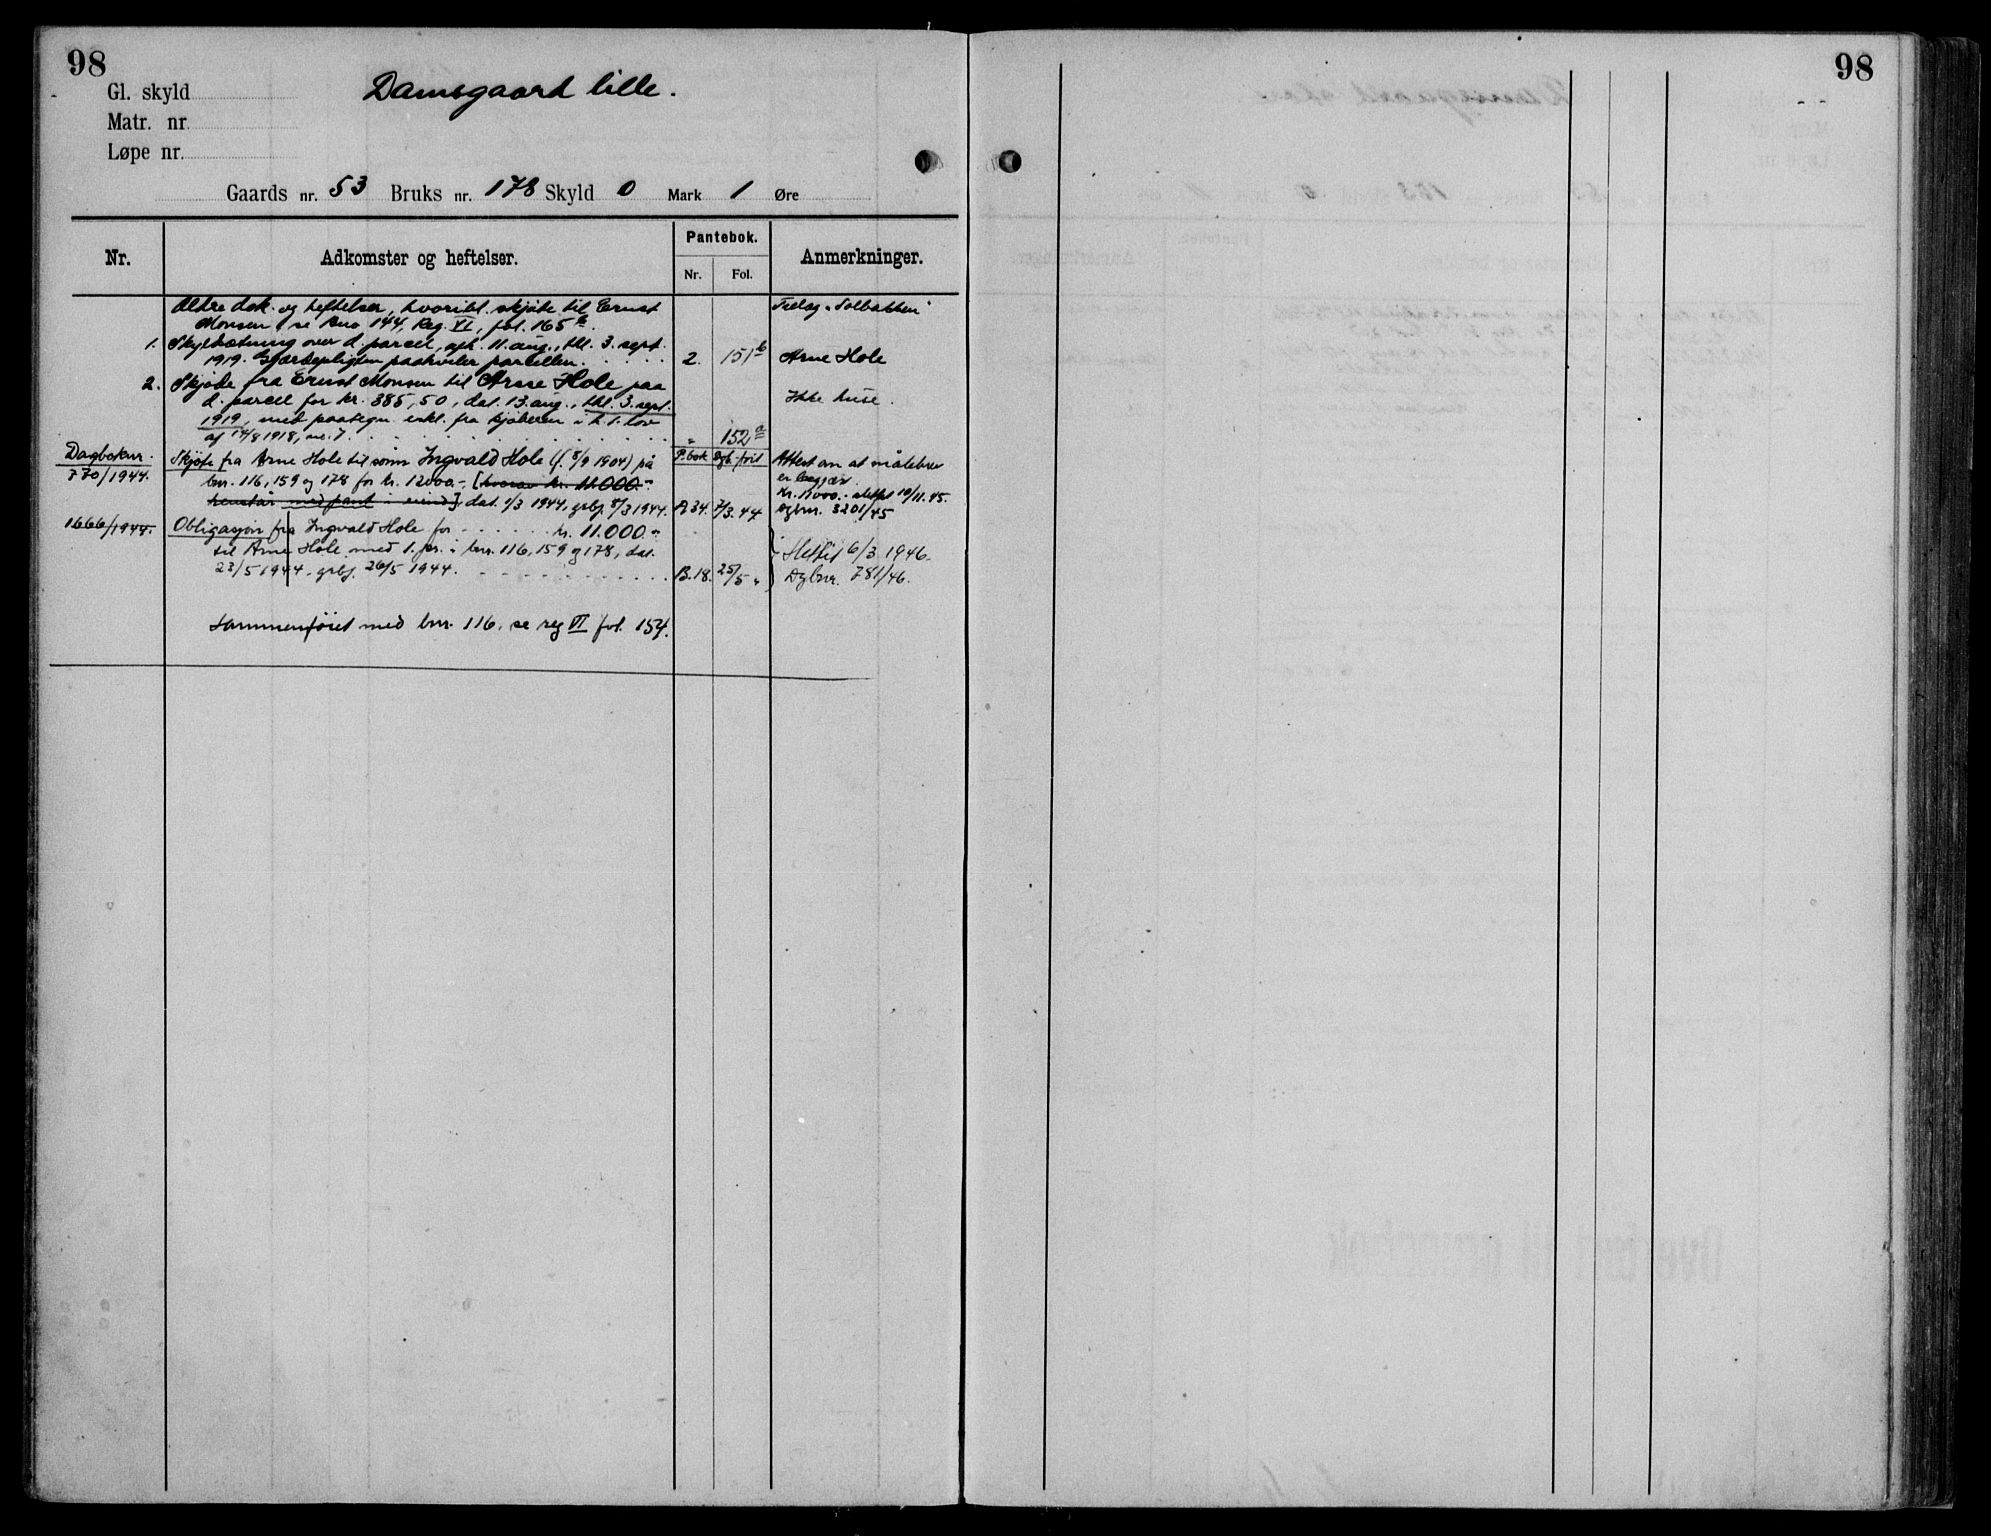 98
Damsgaard lille.
98
Gl. skyld
Matr. nr.
Løpe nr.
Gaards nr. 53 Bruks nr. 178 Skyld 0 Mark 1 Øre
Nr. Adkomster og heftelser. Pantebok. Anmerkninger.
Nr. Fol.
Ældre dok. og heftelser, hvoribl. skjøte til Ernst
Tillæg "Solbakken"
Monsen, se bno 144, Reg. VI, fol. 165 b.
1. Skyldsætning over d. parcel, afh. 11. aug., thl. 3. sept.
1919. Gjærdepligten paahviler parcellen. 2. 151 b Arne Hole
2. Skjøte fra Ernst Monsen til Arne Hole paa
d. parcel for kr. 385,50, dat. 13. aug., thl. 3. sept. Ikke huse.
1919, med paategn. erkl. fra kjøberen i h. t. lov
af 14/8 1918, nr. 7. " 152 a
Dagboknr. Skjøte fra Arne Hole til sønn Ingvald Hole (f. 8/9 1904) på P.bok Dgb.ført Attest om at målebrev
770/1944. bnr. 116, 159 og 178 for kr. 12000.-, [hvorav kr. 11000.- er begjær.
henstår med pant i eiend.] dat. 1/3 1944, grbf. 8/3 1944. A 34. 7/3.44 kr. 11000.- slettet 10/11.45.
Dgbnr. 3201/45
1666/1944. Obligasjon fra Ingvald Hole for kr. 11.000.-
til Arne Hole med 1. pr. i bnr. 116, 159 og 178, dat. Slettet 6/3 1946.
23/5 1944, grbf. 26/5 1944. B.18. 25/5 " Dgbnr. 781/46.
Sammenføiet med bnr. 116, se reg VI fol. 154.